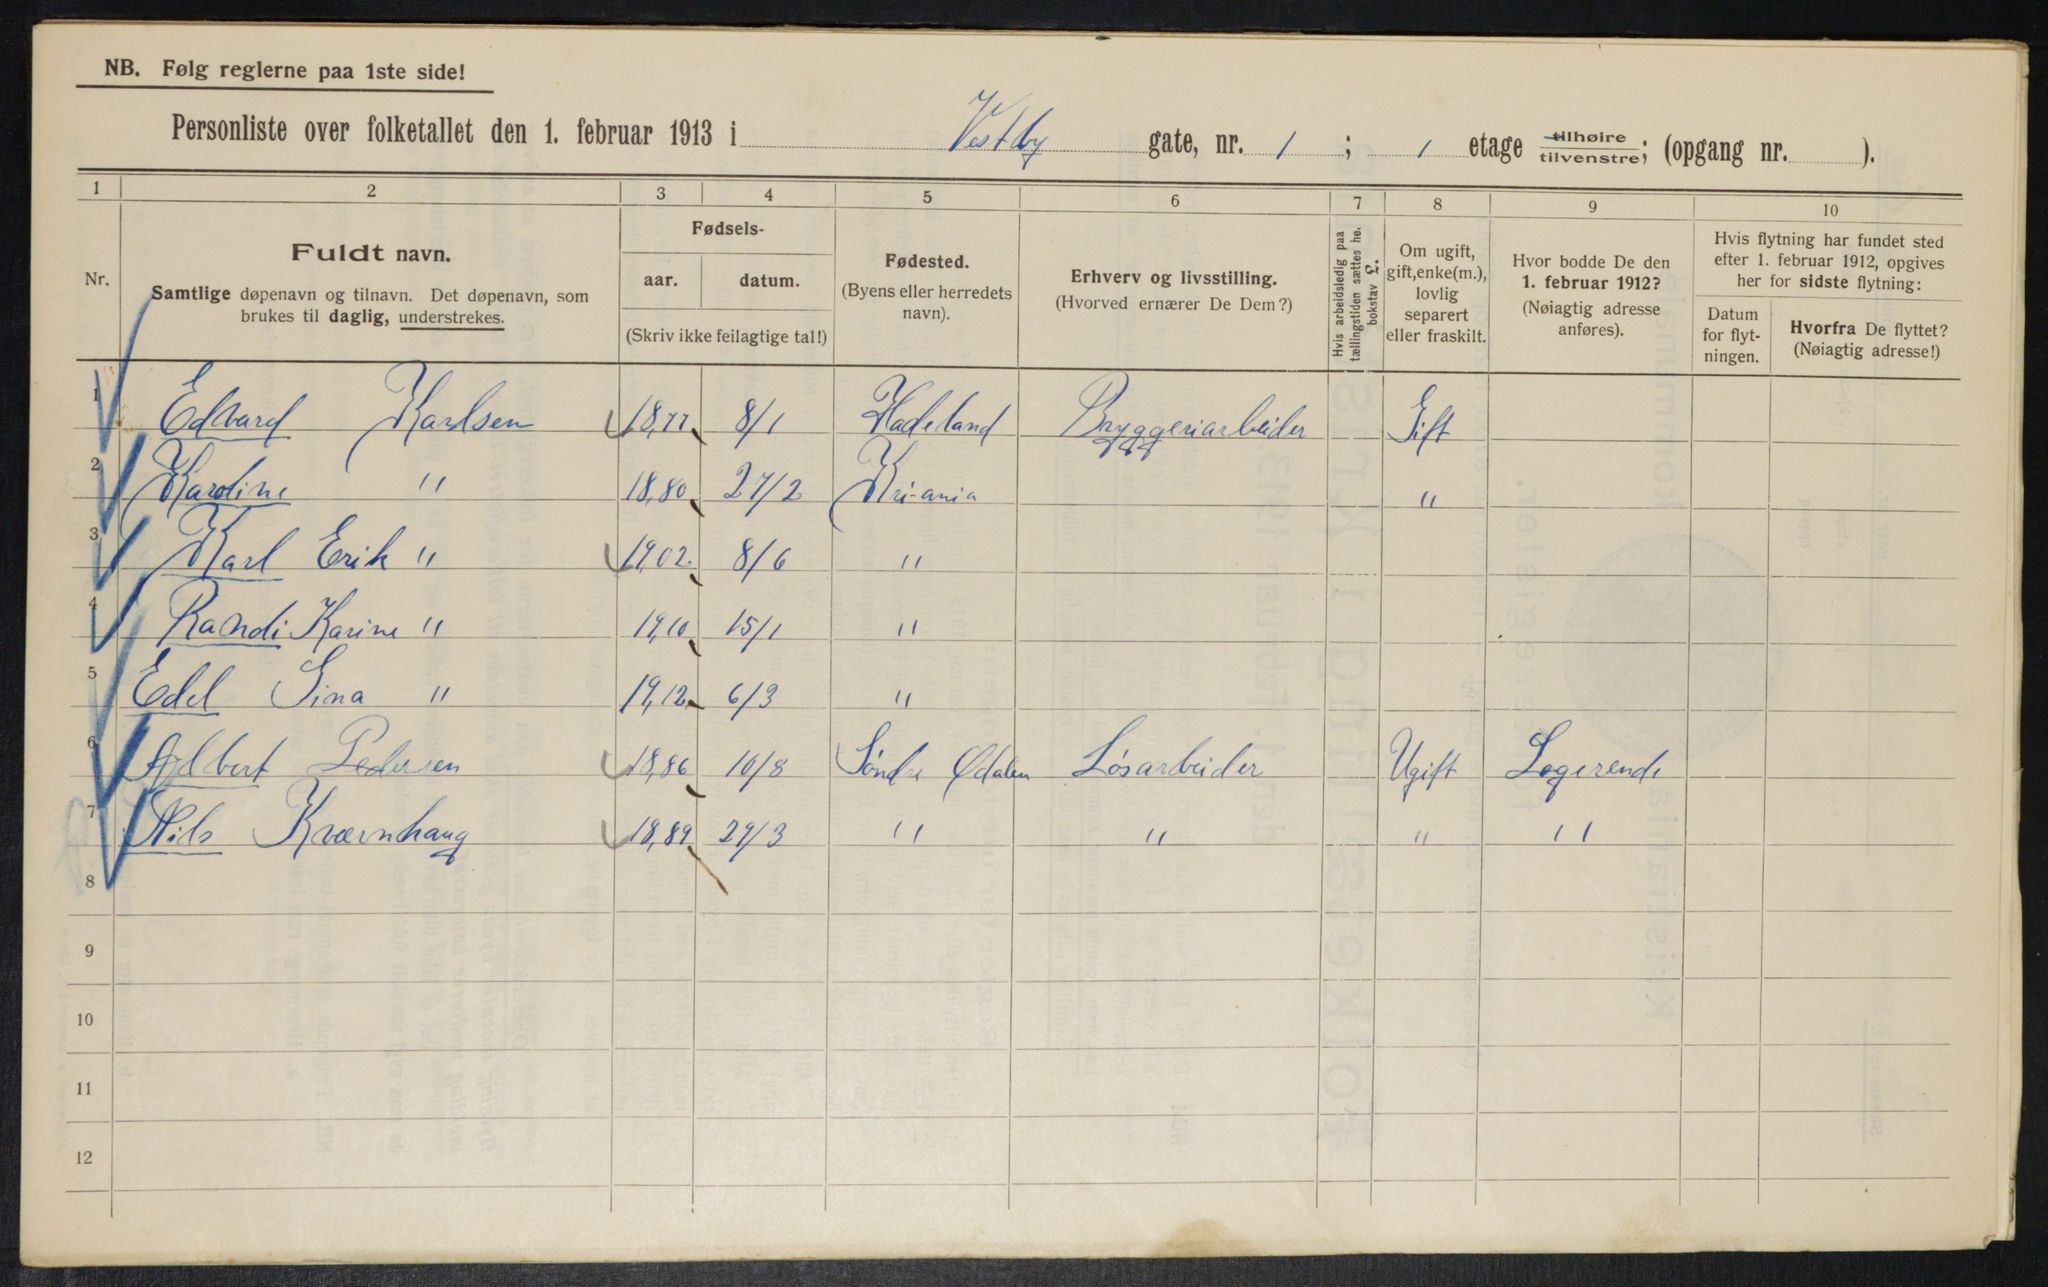 NB. Følg reglerne paa 1ste side!
Personliste over folketallet den 1. februar 1913 i Vestby gate, nr. 1 ; 1 etage tilhøire tilvenstre; (opgang nr. ).
1 2 3 4 5 6 7 8 9 10
Nr.
Fuldt navn.
Samtlige døpenavn og tilnavn. Det døpenavn, som
brukes til daglig, understrekes.
Fødsels-
aar. datum.
(Skriv ikke feilagtige tal!)
Fødested.
(Byens eller herredets
navn).
Erhverv og livsstilling.
(Hvorved ernærer De Dem?)
Hvis arbeidsledig paa
tællingstiden sættes he.
bokstav L.
Om ugift,
gift,enke(m.),
lovlig
separert
eller fraskilt.
Hvor bodde De den
1. februar 1912?
(Nøiagtig adresse
anføres).
Hvis flytning har fundet sted
efter 1. februar 1912, opgives
her for sidste flytning:
Datum
for flyt-
ningen.
Hvorfra De flyttet?
(Nøiagtig adresse!)
1 Edvard Karlsen 18,77 8/1 Hadeland Bryggeriarbeider Gift
2 Karoline " 18,80 27/2 Kri-ania "
3 Karl Erik " 19,02 8/6 "
4 Randi Karine " 19,10 15/1 "
5 Edel Gina " 19,12 6/3 "
6 Adbert Pedersen 18,86 10/8 Søndre Ødalen Løsarbeider Ugift Logerende
7 Nils Kværnhaug 18,89 29/3 " " " "
8
9
10
11
12